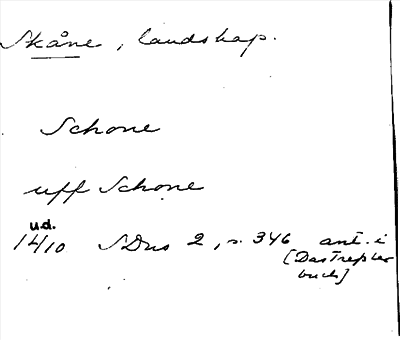 Skåne, landskap.
Schone
uff Schone
u.d.
14/10 SDns 2, s. 346 ant. i
[Das Tresler
buch]